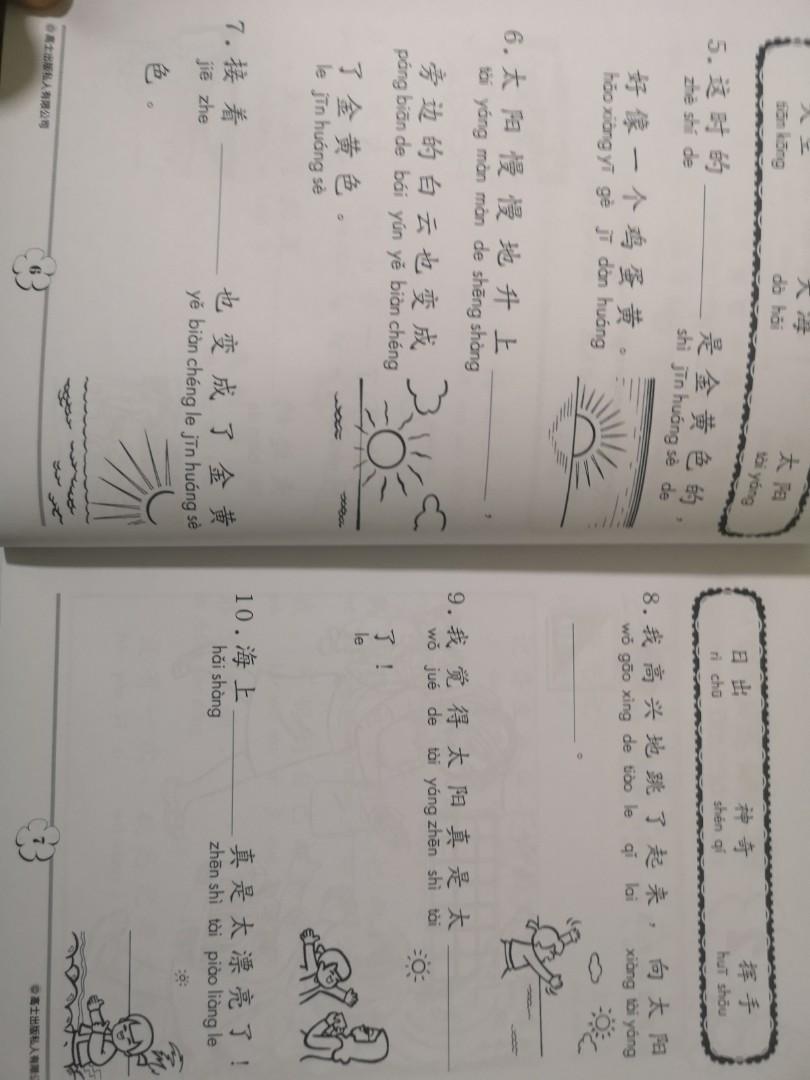 大海 太阳
tiān kōng dà hǎi tài yáng
5. 这时的 ________ 是金黄色的，
zhè shí de shì jīn huáng sè de
好像一个鸡蛋黄。
hǎo xiàng yī gè jī dàn huáng
6. 太阳慢慢地升上 ________，
tài yáng màn màn de shēng shàng
旁边的白云也变成
páng biān de bái yún yě biàn chéng
了金黄色。
le jīn huáng sè
7. 接着 ________ 也变成了金黄
jiē zhe yě biàn chéng le jīn huáng sè
色。
©高士出版私人有限公司
6
日出 神奇 挥手
rì chū shén qí huī shǒu
8. 我高兴地跳了起来，向太阳
wǒ gāo xìng de tiào le qǐ lai xiàng tài yáng
________。
9. 我觉得太阳真是太 ________
wǒ jué de tài yáng zhēn shì tài
了！
le
10. 海上 ________ 真是太漂亮了！
hǎi shàng zhēn shì tài piào liàng le
7
©高士出版私人有限公